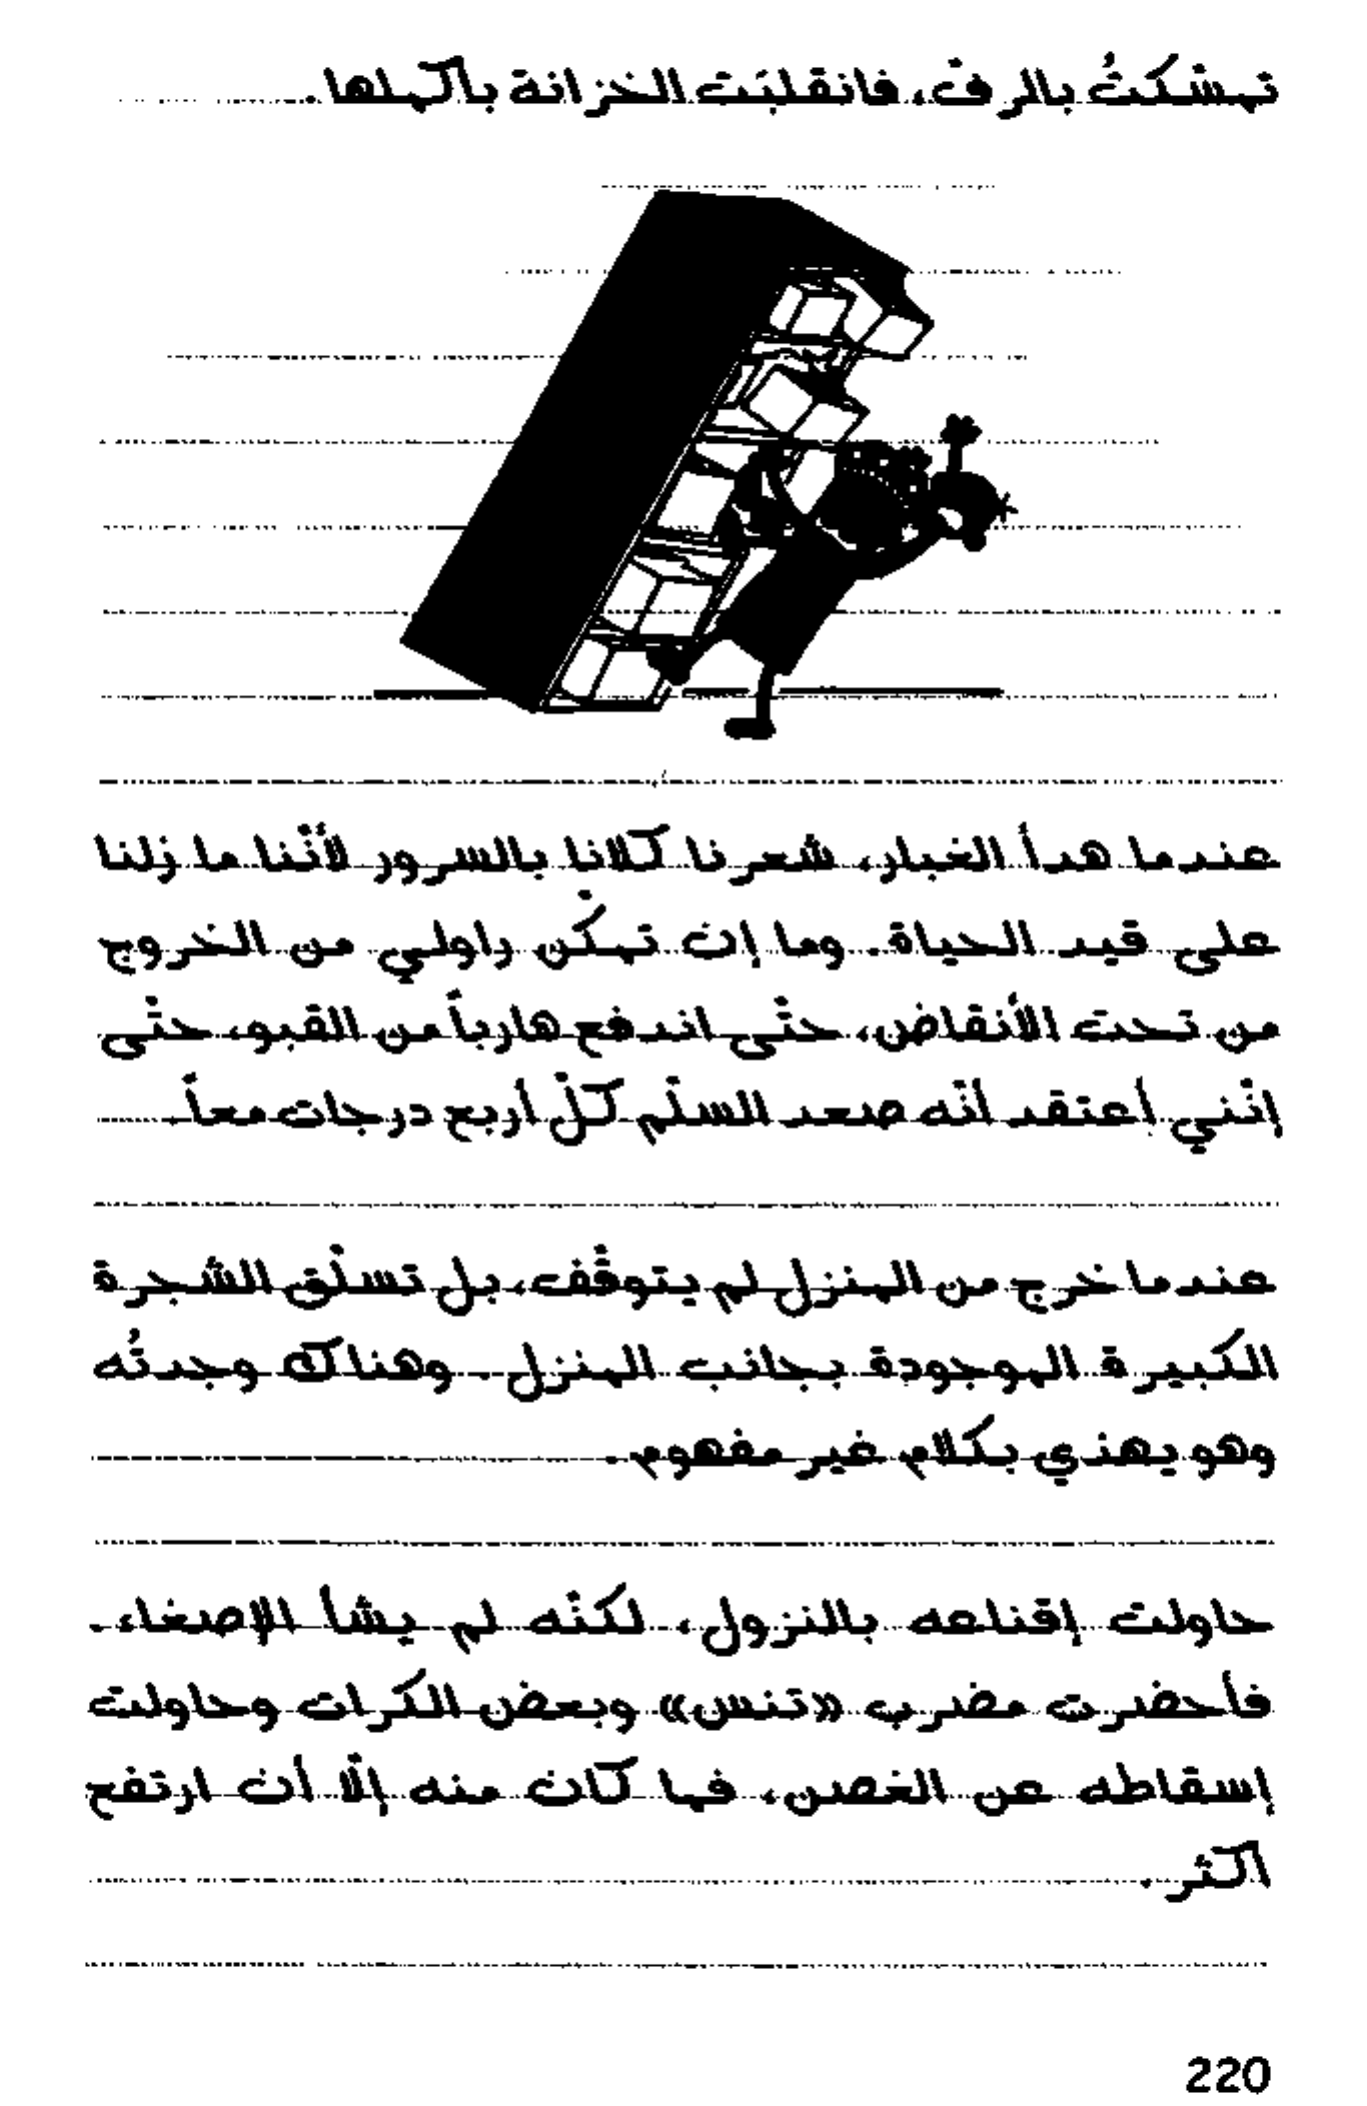 تمسّكتُ بالرفّ، فانقلبَت الخزانة بأكملها.
عندما هدأ الغبار، شعرنا كلانا بالسرور لأنّنا ما زلنا
على قيد الحياة. وما إن تمكّن راولي من الخروج
من تحت الأنقاض، حتّى اندفع هارباً من القبو، حتّى
إنّني أعتقد أنّه صعد السلّم كلّ أربع درجات معاً.
عندما خرج من المنزل لم يتوقّف، بل تسلّق الشجرة
الكبيرة الموجودة بجانب المنزل. وهناك وجدتُه
وهو يهذي بكلام غير مفهوم.
حاولت إقناعه بالنزول، لكنّه لم يشأ الإصغاء.
فأحضرت مضرب «تنس» وبعض الكرات وحاولت
إسقاطه عن الغصن، فما كان منه إلّا أن ارتفع
أكثر.
220